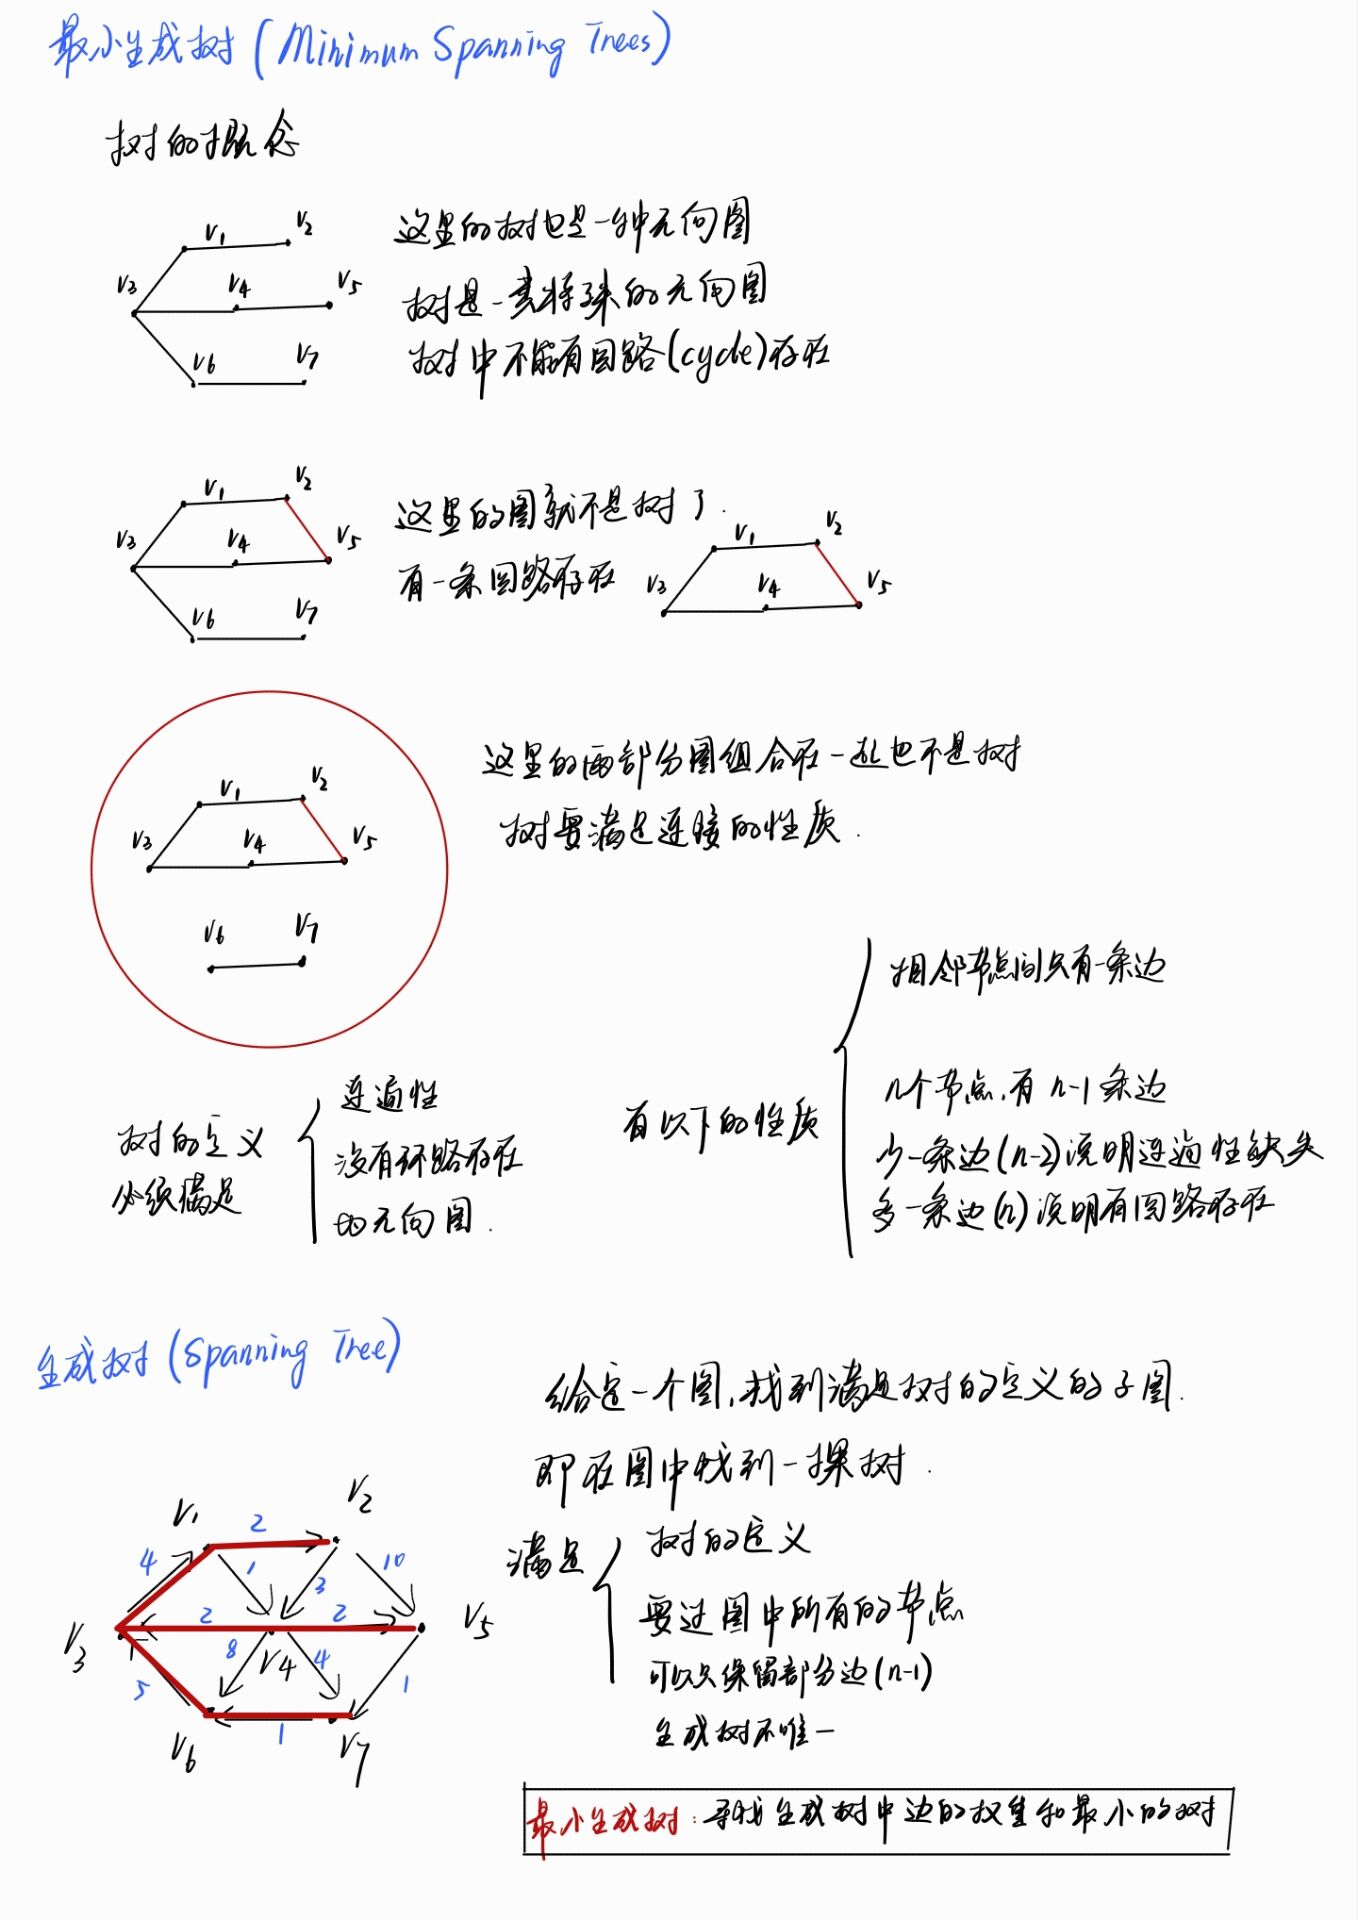 最小生成树 (Minimum Spanning Trees)
树的概念
V1 V2
V3 V4 V5
V6 V7
这里的树也是一种无向图
树是一类特殊的无向图
树中不能有回路(cycle)存在
V1 V2
V3 V4 V5
V6 V7
这里的图就不是树了.
有一条回路存在
V1 V2
V3 V4 V5
V1 V2
V3 V4 V5
V6 V7
这里的两部分图组合在一起也不是树
树要满足连接的性质.
树的定义
必须满足
连通性
没有环路存在
的无向图.
有以下的性质
相邻节点间只有一条边
n个节点,有 n-1 条边
少一条边(n-2)说明连通性缺失
多一条边(n)说明有回路存在
生成树 (Spanning Tree)
给定一个图,找到满足树的定义的子图.
即在图中找到一棵树.
V1 2 V2
4 1 3 10
V3 2 2 V5
5 8 V4 4 1
V6 1 V7
满足
树的定义
要过图中所有的节点
可以只保留部分边(n-1)
生成树不唯一
最小生成树: 寻找生成树中边的权重和最小的树